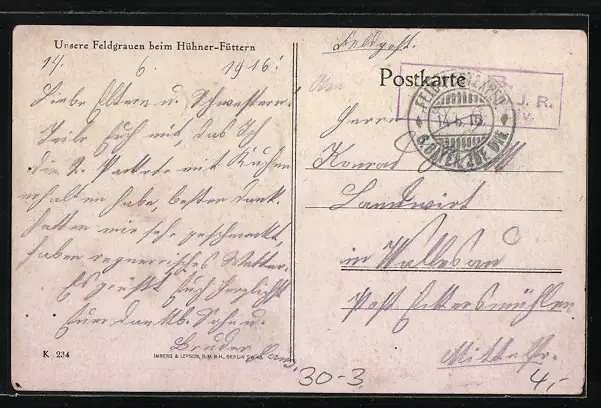 Unsere Feldgrauen beim Hühner-Füttern
14. 6. 1916!
Liebe Eltern u. Schwestern.
Teile Euch mit, das Ich
die 2. Packete mit Kuchen
erhalten habe, besten Dank.
hatten mir sehr geschmeckt,
haben regnerisches Wetter.
Es grüßt Euch herzlichst
Euer dankb. Sohn u.
Bruder
K 234
IMBERG & LEFSON, G.M.B.H., BERLIN SW.
Feldpost.
Postkarte
J. R.
14.6.16
BAYER. RES. DIV.
Herrn
Konrad
Landwirt
in
Post
Mittelfr.
30-3
4,-